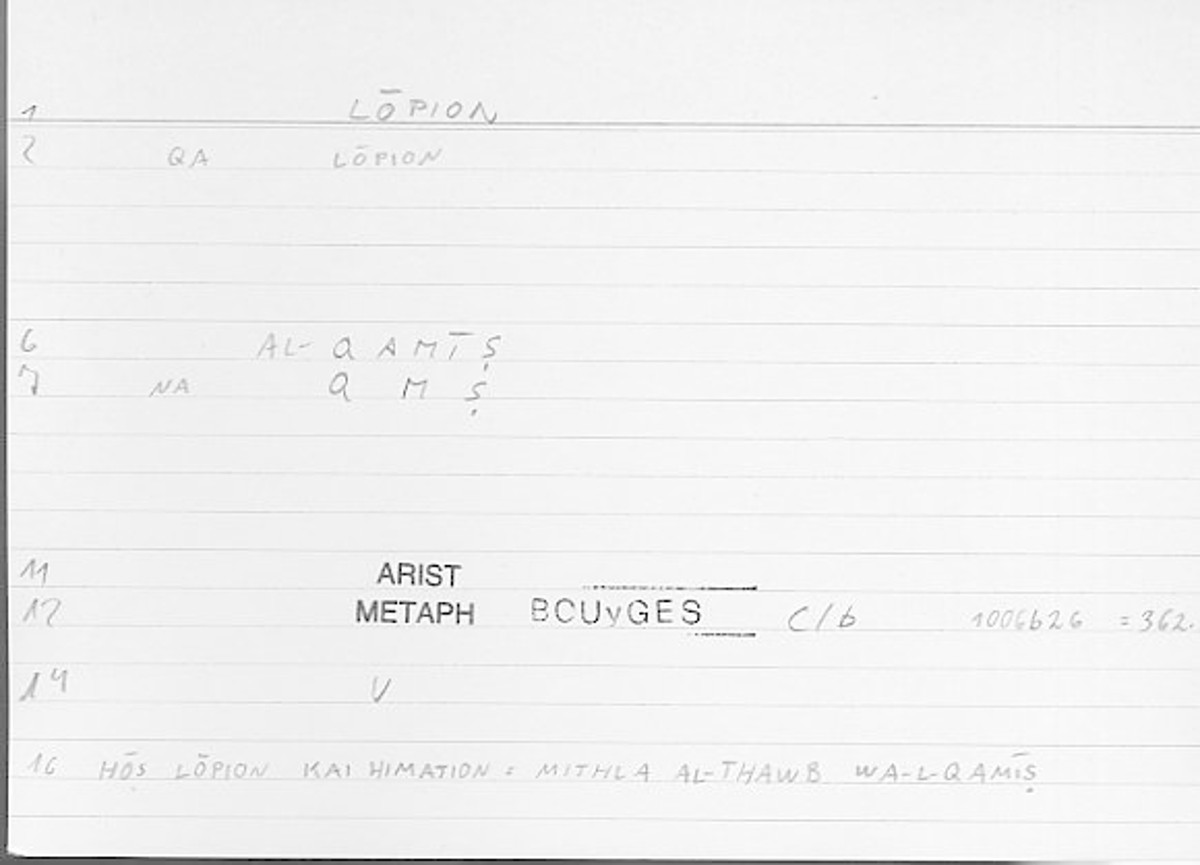 1 LŌPION
2 QA LŌPION
6 AL-QAMĪṢ
7 NA Q M Ṣ
11 ARIST
12 METAPH BOUyGES C/b 1006b26 =362.
14 V
16 HŌS LŌPION KAI HIMATION = MITHLA AL-THAWB WA-L-QAMĪṢ